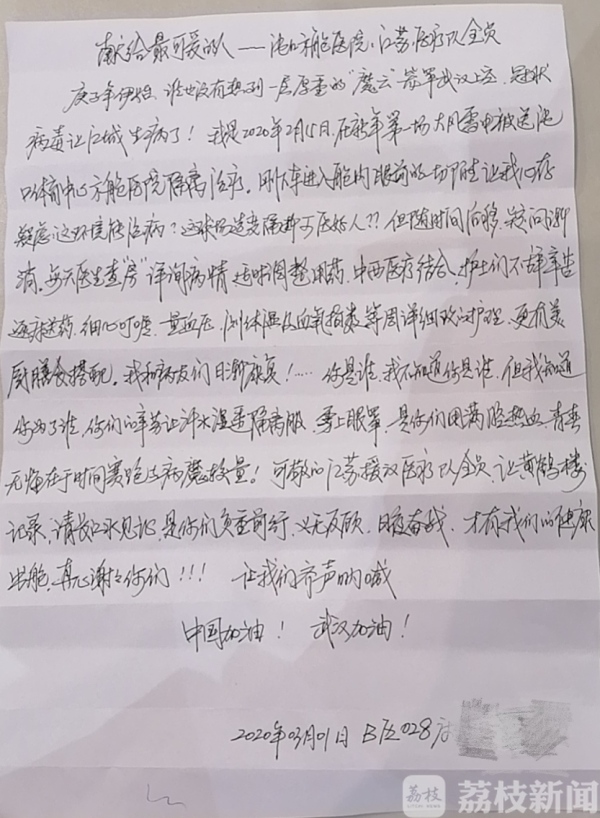 献给最可爱的人——沌口方舱医院,江苏医疗队全员
庚子年伊始,谁也没有想到一层厚重的"魔云"笼罩武汉上空,冠状
病毒让江城生病了!我是2020年2月15日,在新年第一场大风雷电被送沌
口体育中心方舱医院隔离治疗。刚下车进入舱内眼前的一切陌生让我心存
疑虑这环境能治病?这状况造类隔断可医好人??但随时间向移,疑问渐
消,每天医生查"房"详询病情适时调整用药,中西医疗结合,护士们不辞辛苦
逐床送药、细心叮嘱、量血压、测体温及血氧指数等周详细致的护理,更有美
厨膳食搭配。我和病友们日渐康复!……你是谁,我不知道你是谁,但我知道
你为了谁,你们的辛劳让汗水湿透隔离服,雾上眼罩,是你们用满腔热血,青春
无悔在于时间赛跑与病魔较量!可敬的江苏援汉医疗队全员,让黄鹤楼
记录,请长江水见证,是你们负重前行,义无反顾,日夜奋战,才有我们的健康
出舱,真心谢谢你们!!! 让我们齐声呐喊
中国加油! 武汉加油!
2020年03月01日 B区028床
荔枝 荔枝新闻